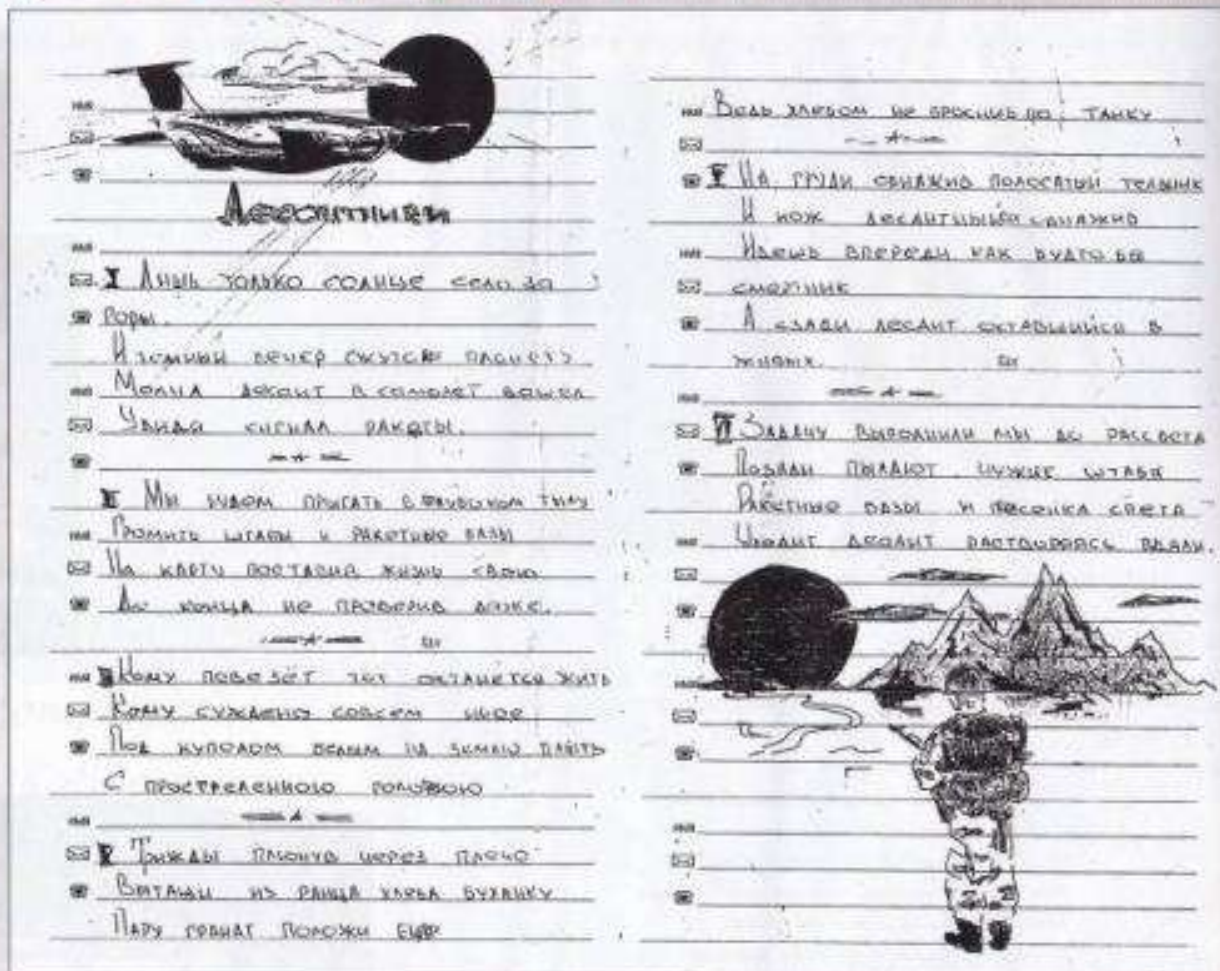 Десантники
I Лишь только солнце село за
горы.
И земный вечер спустся планеты
Молча десант в самолёт вошел
Увидя сигнал ракеты.
II Мы будем прыгать в глубоком тылу
Громить штабы и ракетные базы
На карту поставив жизнь свою
До конца не проверив даже.
III Кому повезёт тот останется жить
Кому суждено совсем иное
Под куполом белым на землю плыть
С простреленною головою
Трижды плюнув через плечо
Вытащи из ранца хлеба буханку
Пару гранат положи ещё
Ведь хлебом не бросишь по танку
V На груди обнажив полосатый тельник
И нож десантный обнажив
Идешь впереди как будто бы
смертник
А сзади десант оставшийся в
живых.
VI Задачу выполнили мы до рассвета
Позади пылают чужие штаба
Ракетные базы и песенка спета
Уходит десант растворяясь вдали.